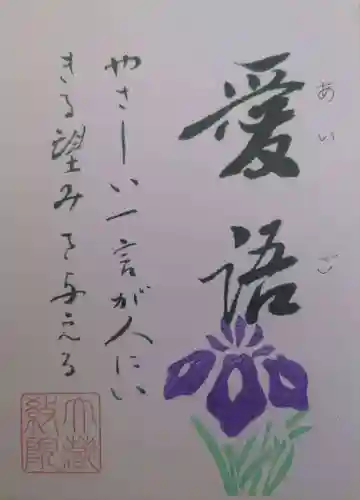 愛語
あいご
やさしい一言が人にい
きる望みを与える